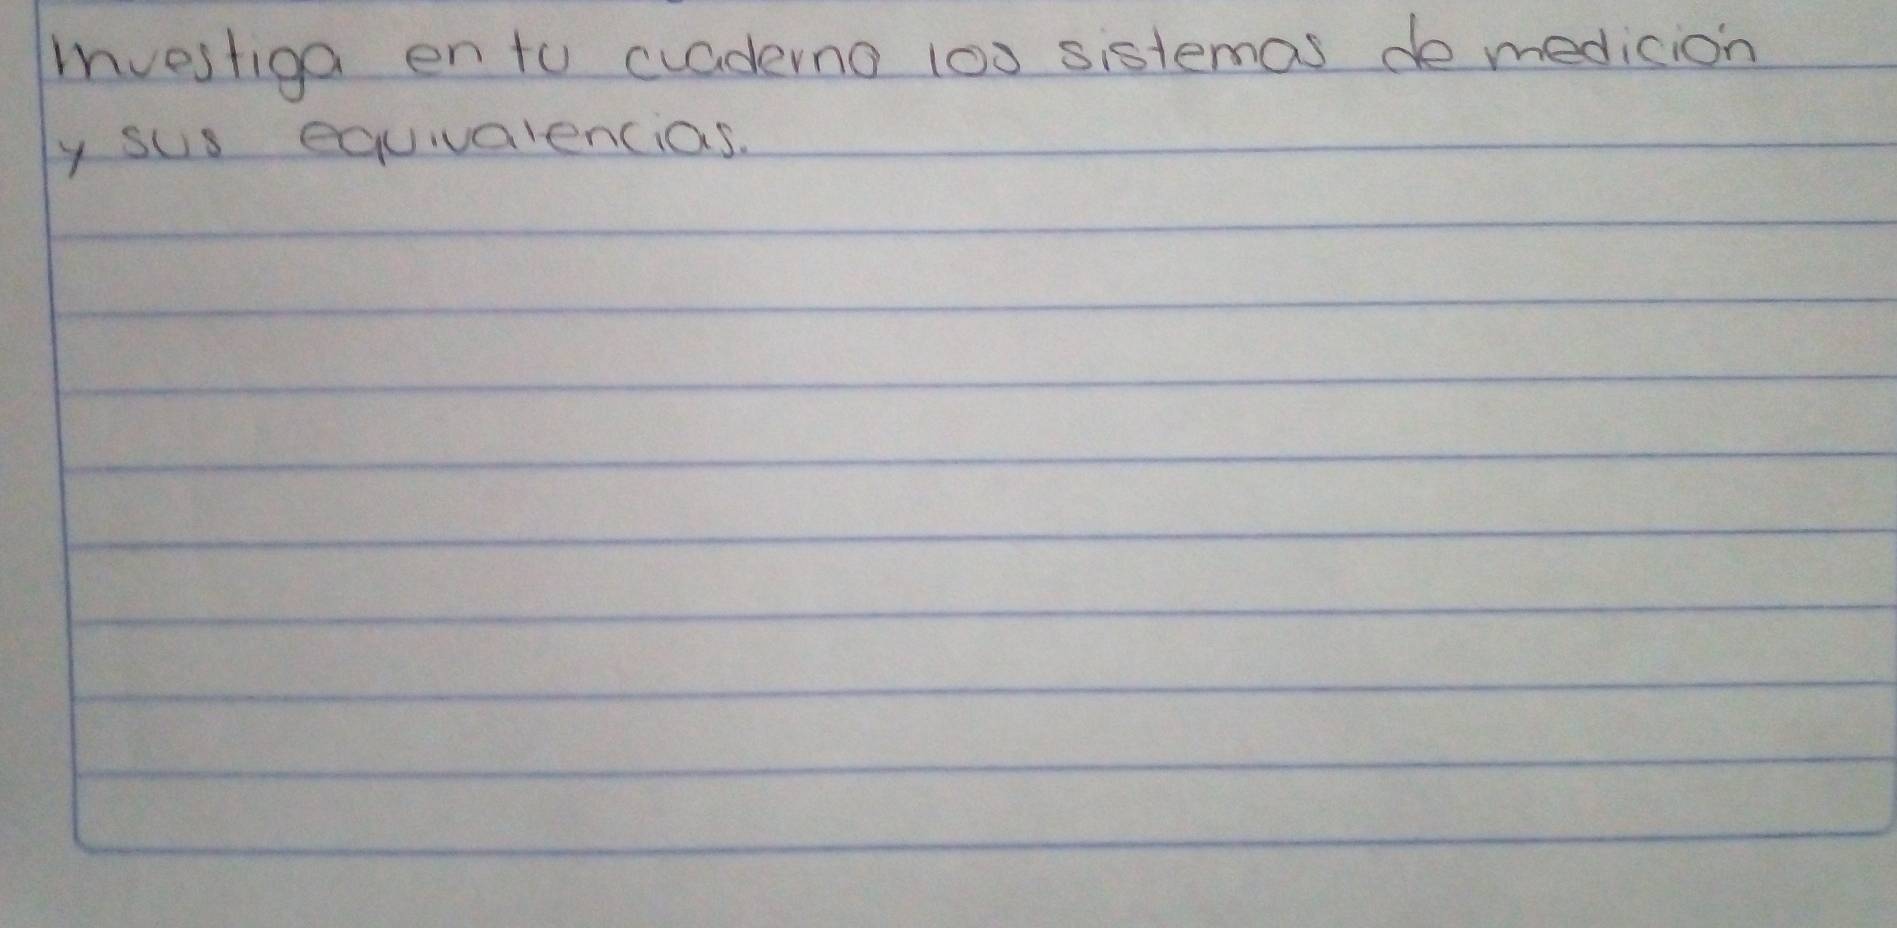 Investiga en tu cuaderno los sistemas de medición
y sus equivalencias.